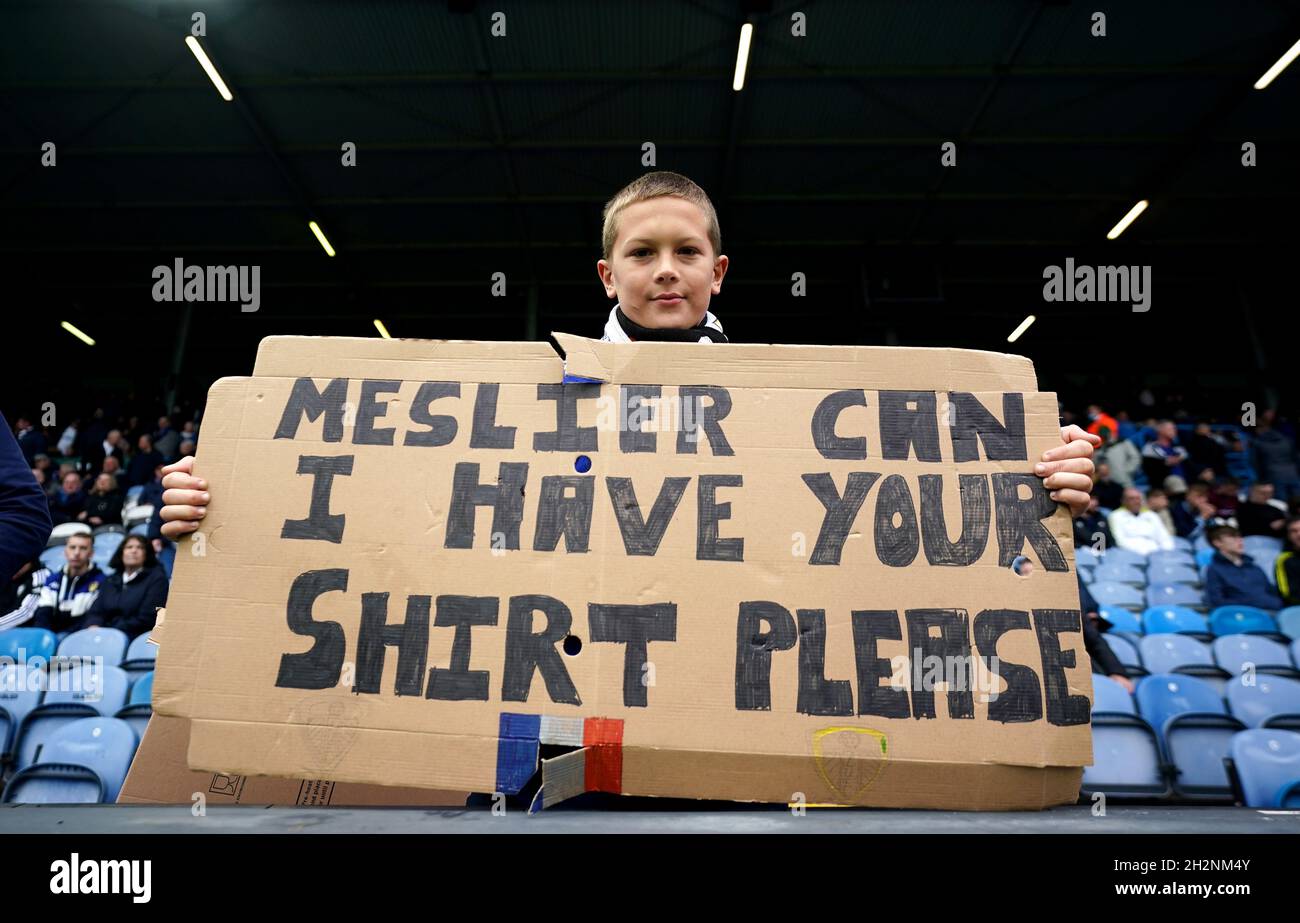 MESLIER CAN
I HAVE YOUR
SHIRT PLEASE
alamy
alamy
Image ID: 2H2NM4Y
www.alamy.com